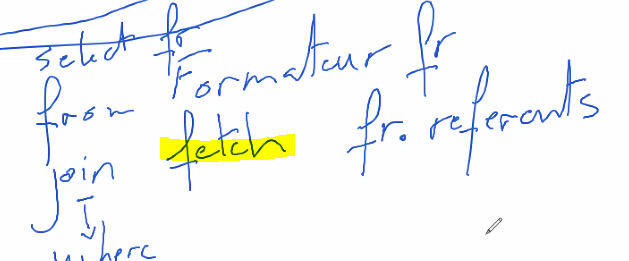 select fr
from Formateur fr
join fetch fr. referents
where